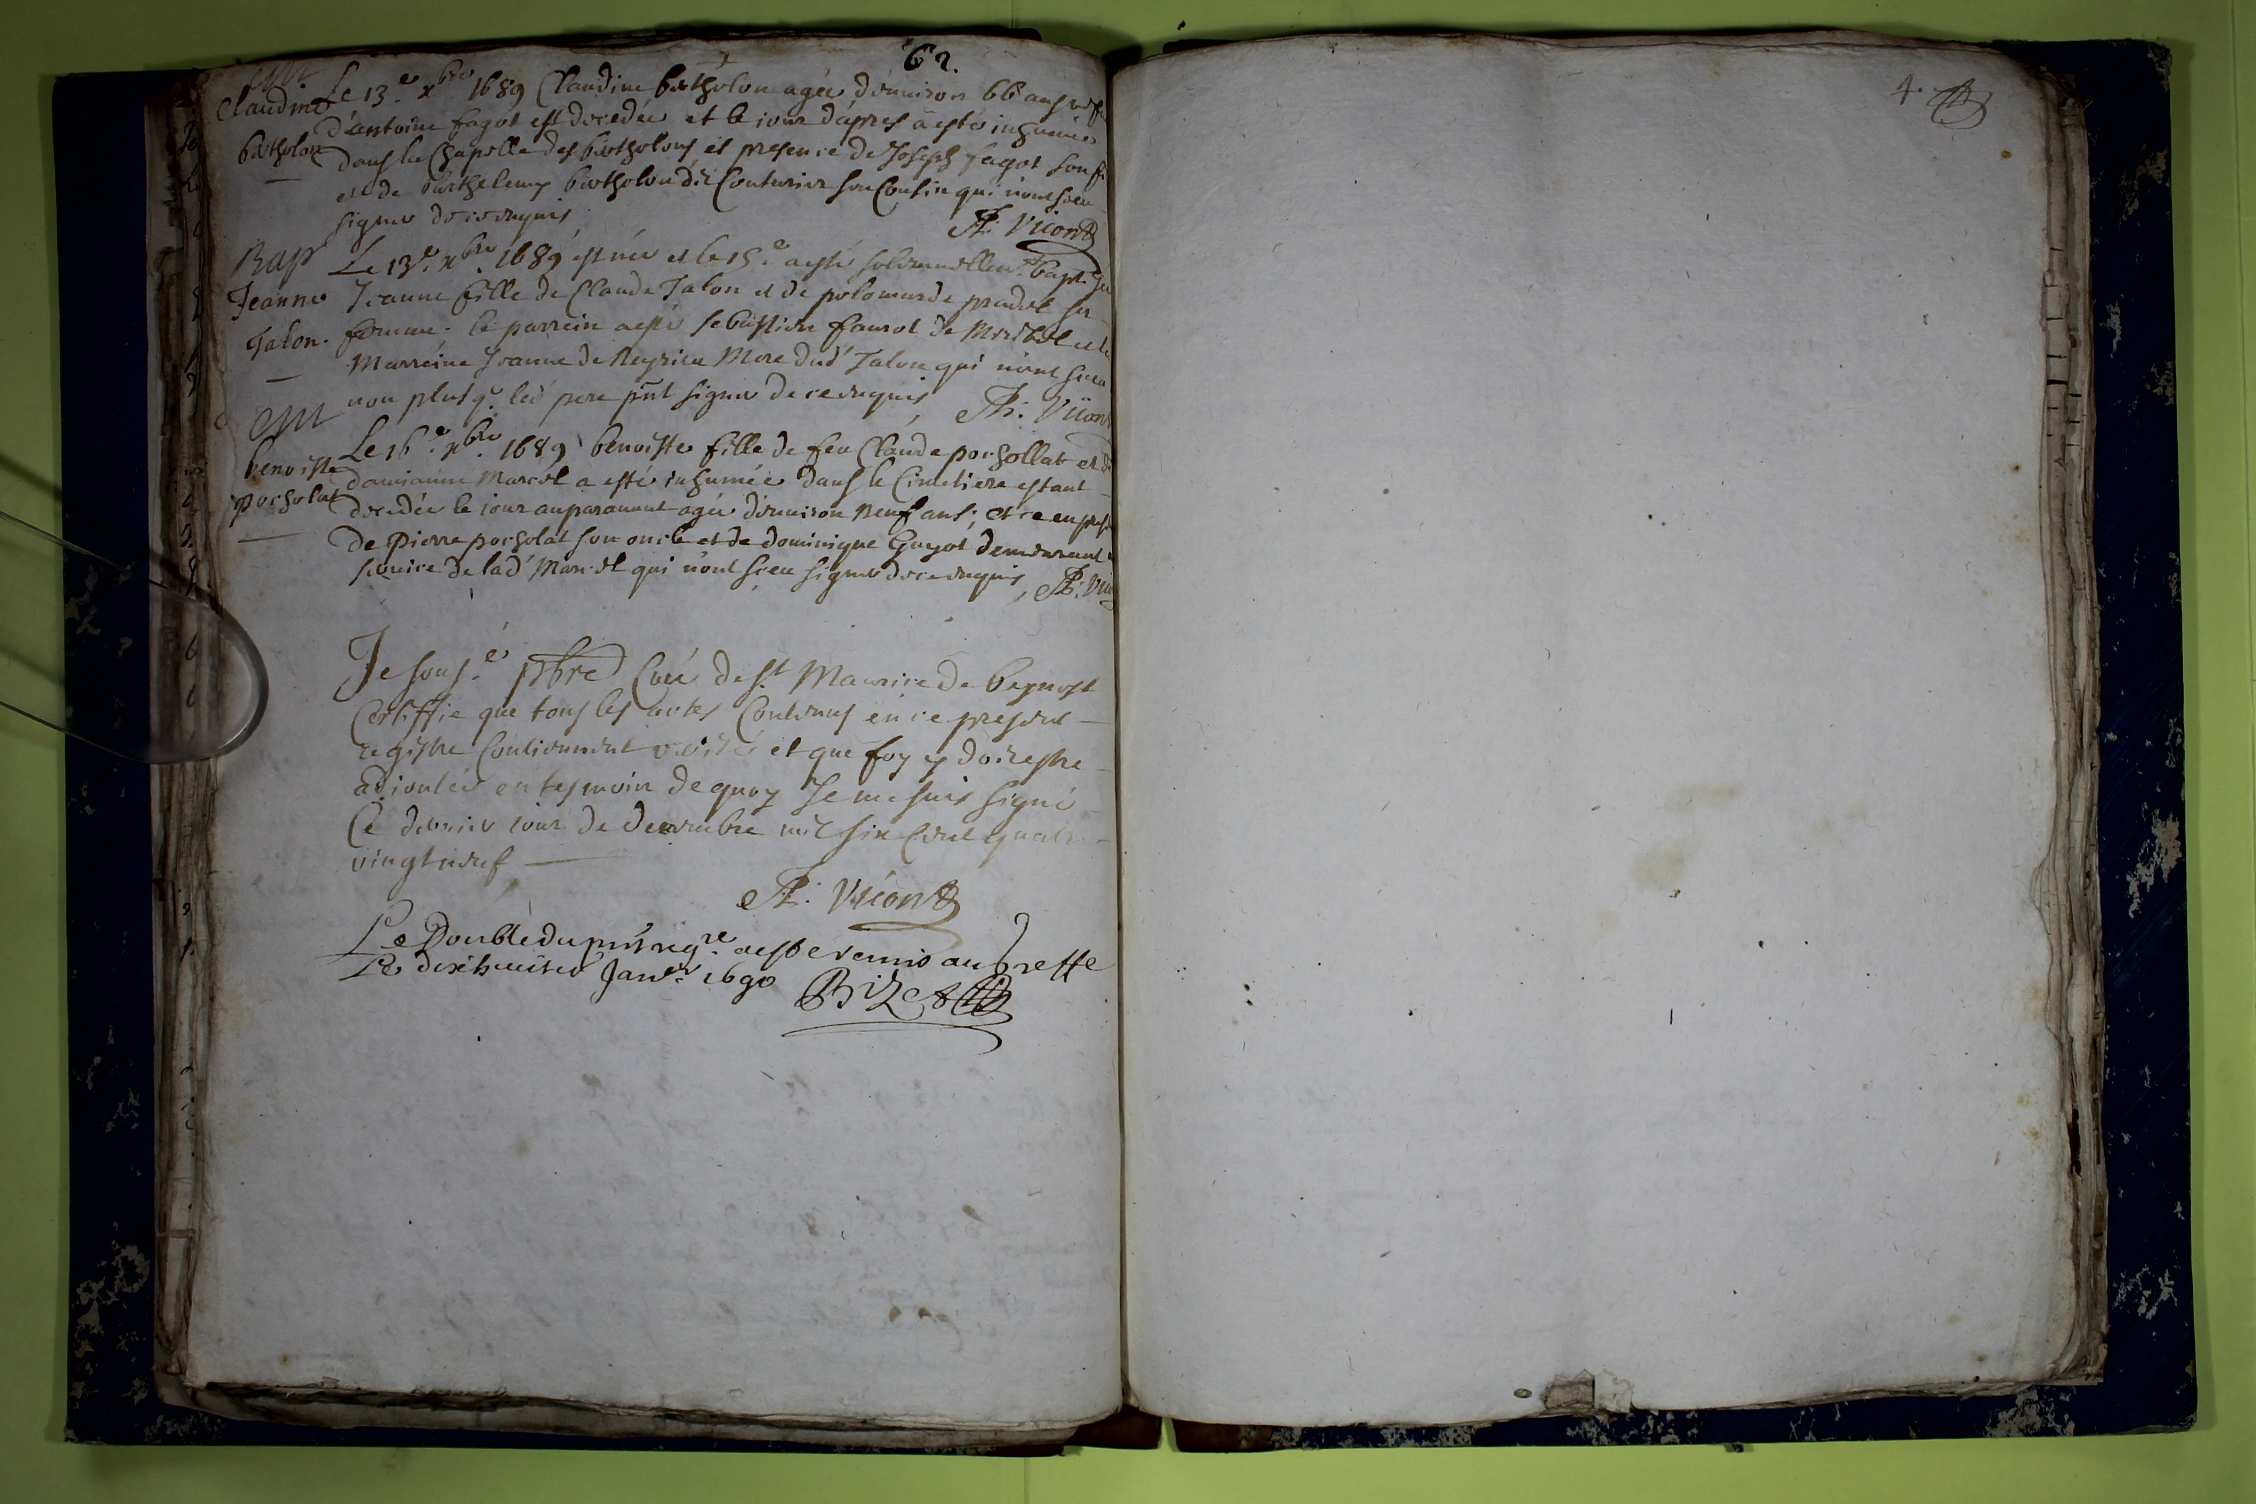 62.
Claudine
bartholon
Le 13.e xbre 1689 Claudine bartholon agée d'enuiron 66 ans
d'antoine fagot est decedée et le iour d'apres a esté inhumée
dans la Chapelle des bartholons et presence de Joseph fagot son
et de barthelemy bartholon dit Couturier son Cousin qui n'ont sceu
signer de ce enquis
Ph: Vicont
Bap
Jeanne
Talon.
Le 13.e xbre. 1689 est née et le 15.e a esté solemnellemt bapt.
Jeanne fille de Claude Talon et de polomarde pradel sa
femme. le parrein a esté sebastien faurot de Miribel et la
Marreine Jeanne de Neyrieu Mere dud' Talon qui n'ont sceu
non plus q. led' pere pnt signer de ce enquis
Ph: Vicont
Em
benoiste
porsolat
Le 16.e xbre. 1689 benoiste fille de feu Claude porsollat et de
damianne Marcel a esté inhumée dans le Cimetiere estant
decedée le iour auparauant agée d'enuiron neuf ans; et ce en
de Pierre porsolat son oncle et de dominique Guyot demeurant
seruice de lad' Marcel qui n'ont sceu signer de ce enquis,
Ph: Vic
Je sous.é pbre Curé de St Maurice de beynost
Certiffie que tous les actes Contenus en ce present
registre Contiennent verité et que foy y doit estre
adioutée en tesmoin de quoy Je me suis signé
Ce dernier iour de decembre mil six Cent quatre
vingt neuf
Ph: Vicont
Le Double du pnt regre. a este remis au greffe
Le dixhuitie Janer. 1690
Bizet
4.